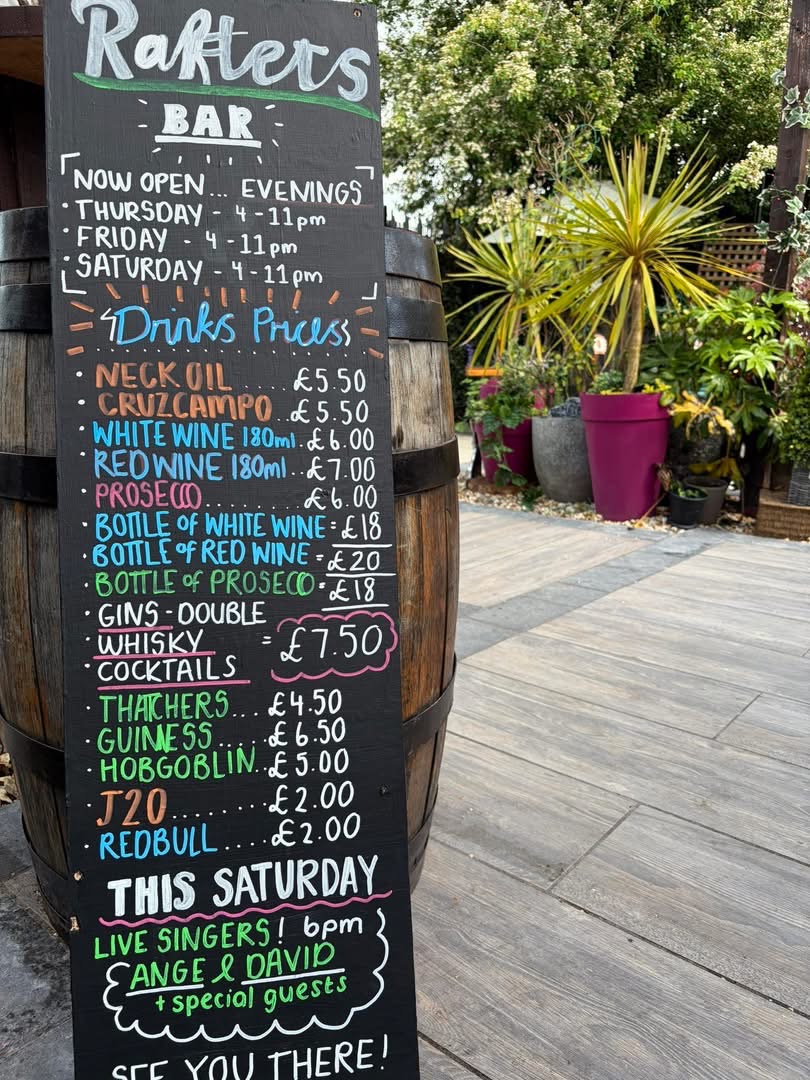 Rafters
BAR
NOW OPEN... EVENINGS
• THURSDAY - 4 - 11pm
• FRIDAY - 4 - 11pm
• SATURDAY - 4 - 11pm
Drinks Prices
• NECK OIL ..... £5.50
• CRUZCAMPO ... £5.50
• WHITE WINE 180ml . £6.00
• RED WINE 180ml .. £7.00
• PROSECCO .......... £6.00
• BOTTLE OF WHITE WINE = £18
• BOTTLE OF RED WINE = £20
• BOTTLE OF PROSECO = £18
• GINS - DOUBLE
• WHISKY = £7.50
• COCKTAILS
• THATCHERS ... £4.50
• GUINNESS ..... £6.50
• HOBGOBLIN .. £5.00
• J20 ........ £2.00
• REDBULL .... £2.00
THIS SATURDAY
LIVE SINGERS! 6pm
ANGE & DAVID
+ special guests
SEE YOU THERE!